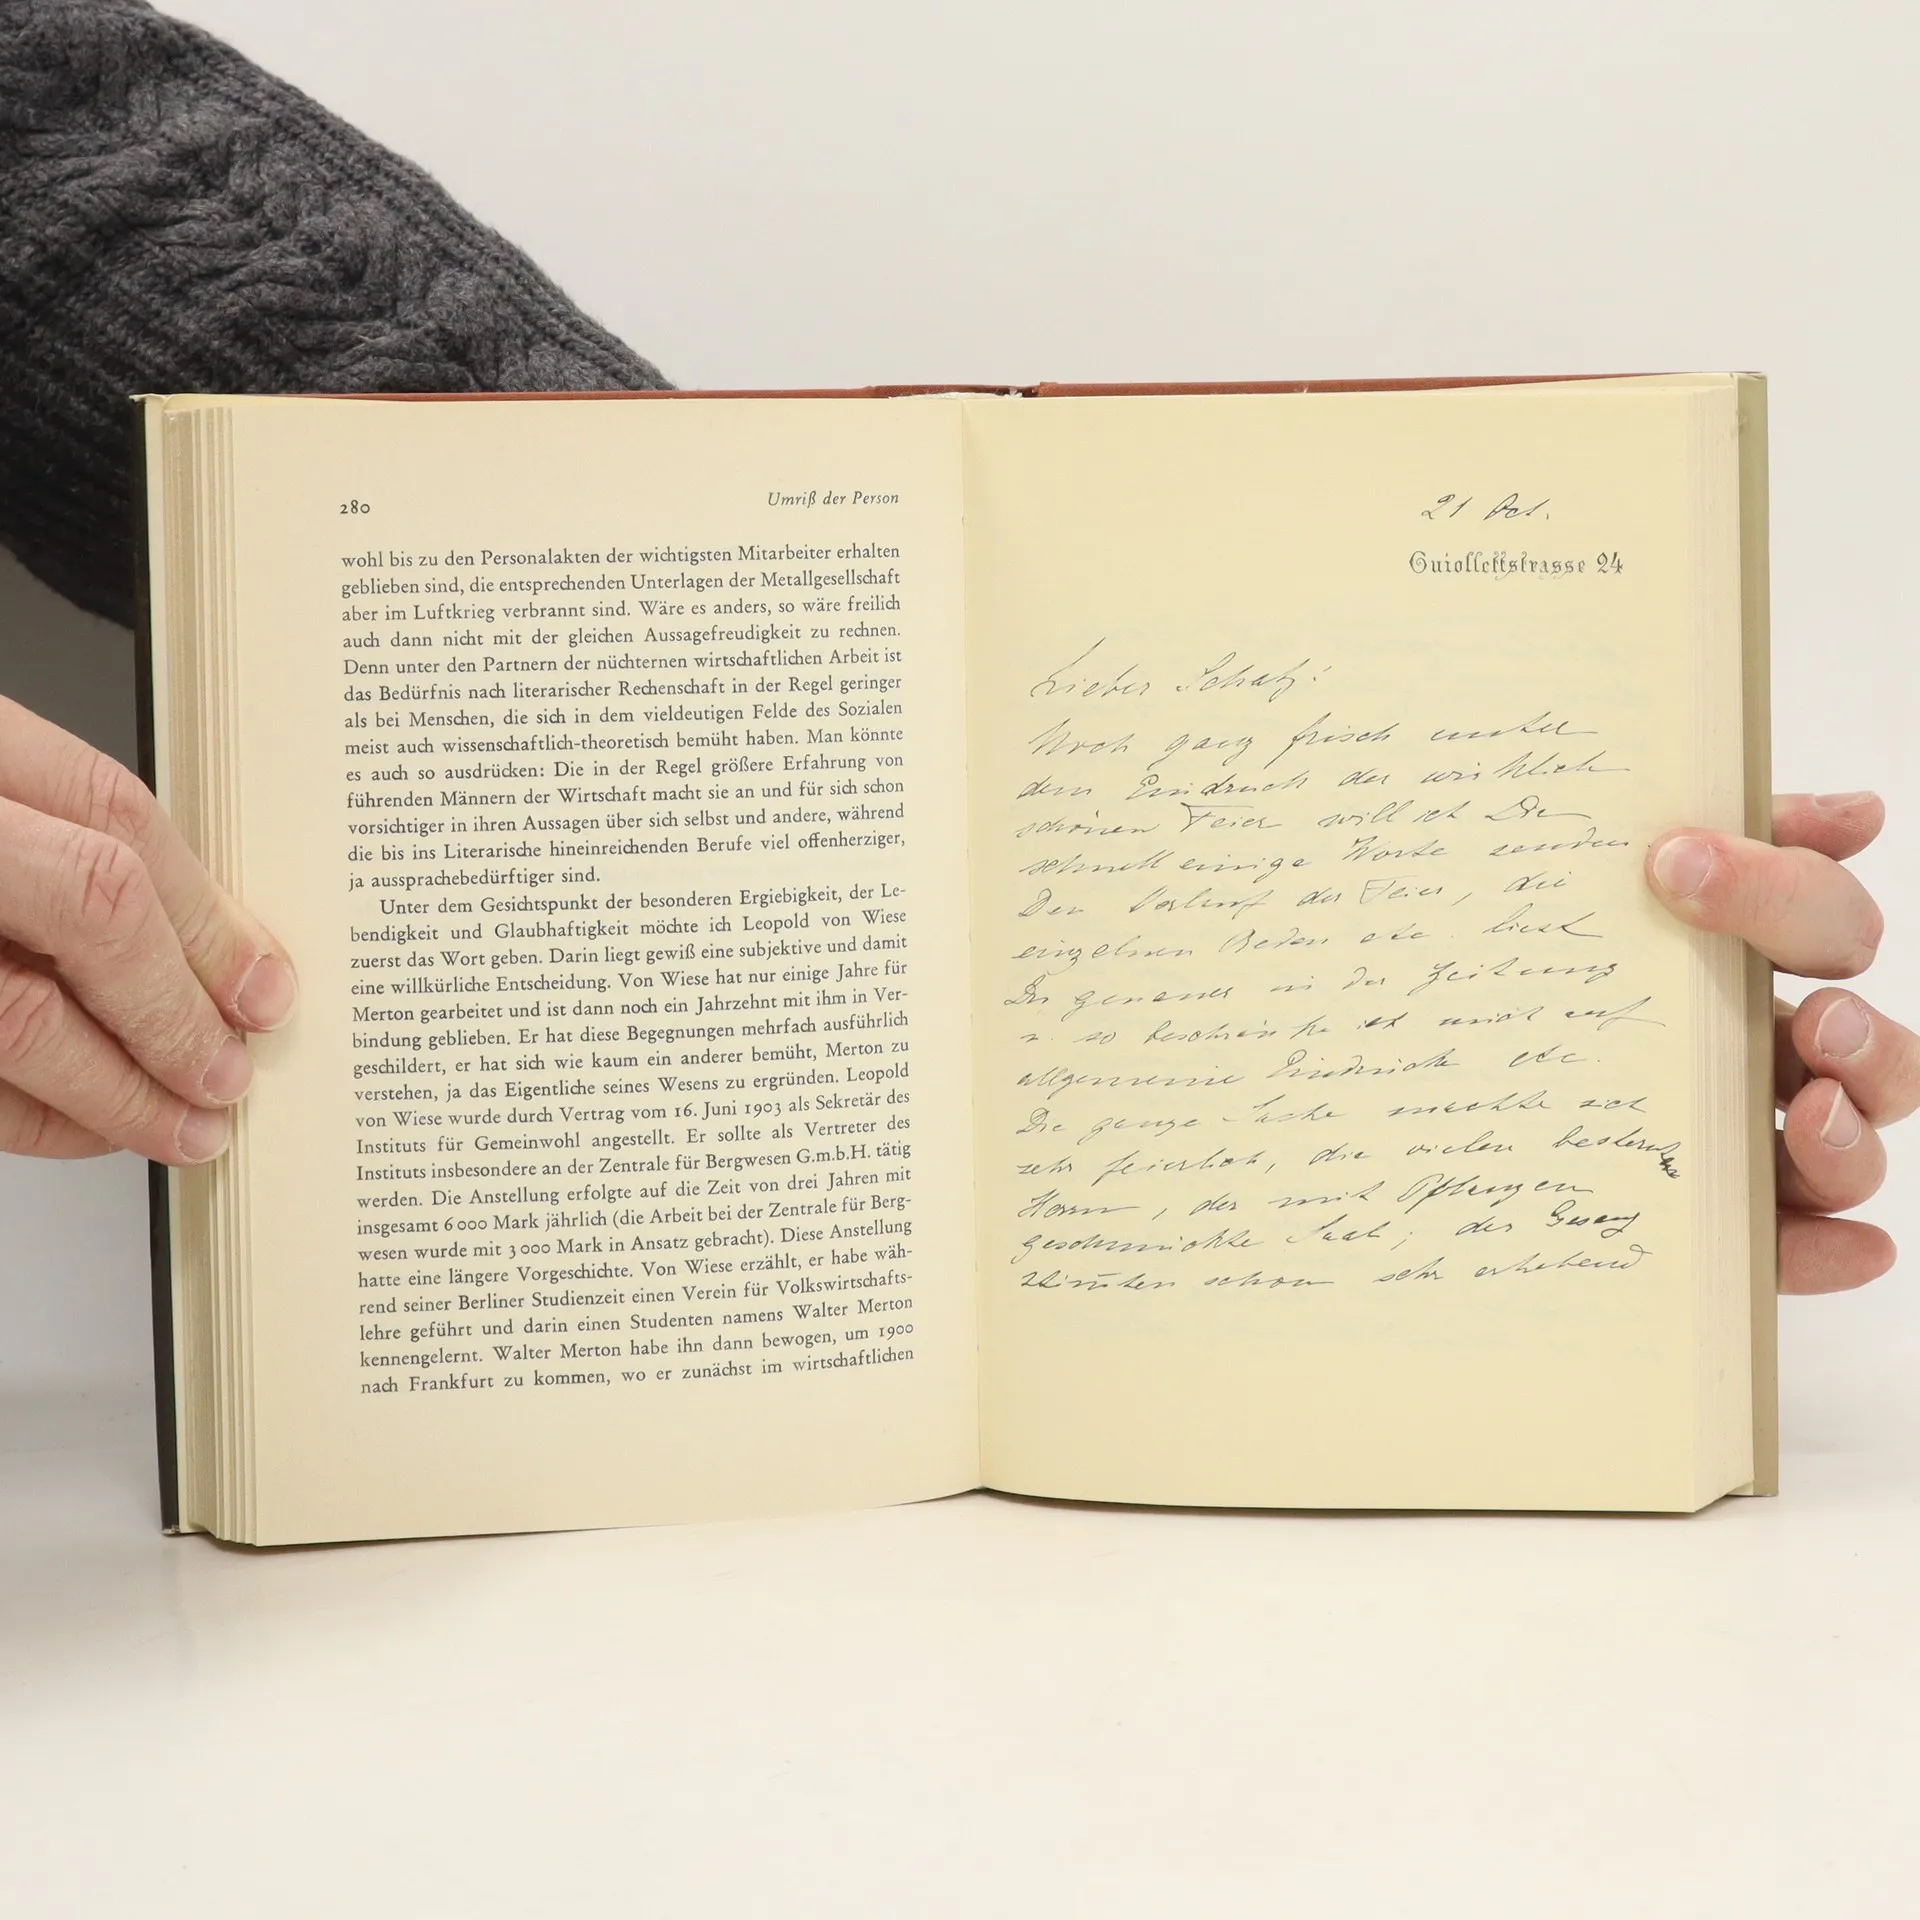 280
Umriß der Person
wohl bis zu den Personalakten der wichtigsten Mitarbeiter erhalten
geblieben sind, die entsprechenden Unterlagen der Metallgesellschaft
aber im Luftkrieg verbrannt sind. Wäre es anders, so wäre freilich
auch dann nicht mit der gleichen Aussagefreudigkeit zu rechnen.
Denn unter den Partnern der nüchternen wirtschaftlichen Arbeit ist
das Bedürfnis nach literarischer Rechenschaft in der Regel geringer
als bei Menschen, die sich in dem vieldeutigen Felde des Sozialen
meist auch wissenschaftlich-theoretisch bemüht haben. Man könnte
es auch so ausdrücken: Die in der Regel größere Erfahrung von
führenden Männern der Wirtschaft macht sie an und für sich schon
vorsichtiger in ihren Aussagen über sich selbst und andere, während
die bis ins Literarische hineinreichenden Berufe viel offenherziger,
ja aussprachebedürftiger sind.
Unter dem Gesichtspunkt der besonderen Ergiebigkeit, der Le-
bendigkeit und Glaubhaftigkeit möchte ich Leopold von Wiese
zuerst das Wort geben. Darin liegt gewiß eine subjektive und damit
eine willkürliche Entscheidung. Von Wiese hat nur einige Jahre für
Merton gearbeitet und ist dann noch ein Jahrzehnt mit ihm in Ver-
bindung geblieben. Er hat diese Begegnungen mehrfach ausführlich
geschildert, er hat sich wie kaum ein anderer bemüht, Merton zu
verstehen, ja das Eigentliche seines Wesens zu ergründen. Leopold
von Wiese wurde durch Vertrag vom 16. Juni 1903 als Sekretär des
Instituts für Gemeinwohl angestellt. Er sollte als Vertreter des
Instituts insbesondere an der Zentrale für Bergwesen G.m.b.H. tätig
werden. Die Anstellung erfolgte auf die Zeit von drei Jahren mit
insgesamt 6000 Mark jährlich (die Arbeit bei der Zentrale für Berg-
wesen wurde mit 3000 Mark in Ansatz gebracht). Diese Anstellung
hatte eine längere Vorgeschichte. Von Wiese erzählt, er habe wäh-
rend seiner Berliner Studienzeit einen Verein für Volkswirtschafts-
lehre geführt und darin einen Studenten namens Walter Merton
kennengelernt. Walter Merton habe ihn dann bewogen, um 1900
nach Frankfurt zu kommen, wo er zunächst im wirtschaftlichen
21 Oct.
Guiollettstrasse 24
Lieber Schatz!
Noch ganz frisch unter
dem Eindruck der wirklich
schönen Feier will ich Dir
schnell einige Worte senden.
Den Verlauf der Feier, die
einzelnen Reden etc. liest
Du genauer in der Zeitung
u. so beschränke ich mich auf
allgemeine Eindrücke etc.
Die ganze Sache machte sich
sehr feierlich, die vielen
Herrn, der mit Pflanzen
geschmückte Saal; der Gesang
schon sehr erhebend